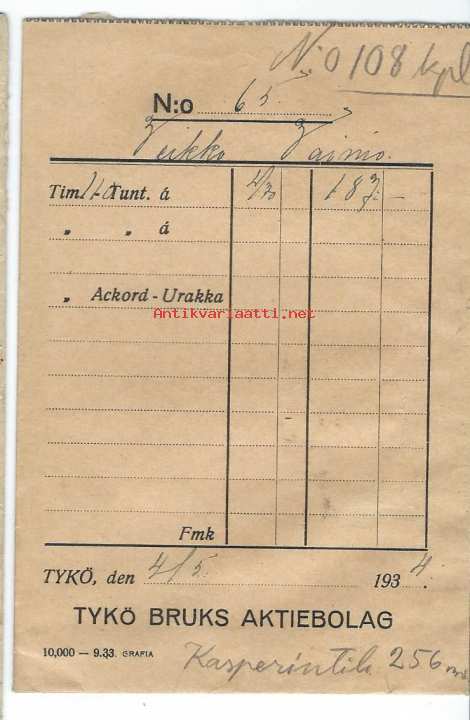 N:o 108 kpl
N:o 65
Veikko Vaimo.
Tim. Tunt. á 4/30 183:-
„ „ á
„ Ackord - Urakka
Antikvariaatti.net
Fmk
TYKÖ, den 4/5 1934.
TYKÖ BRUKS AKTIEBOLAG
10,000 — 9.33. GRAFIA
256